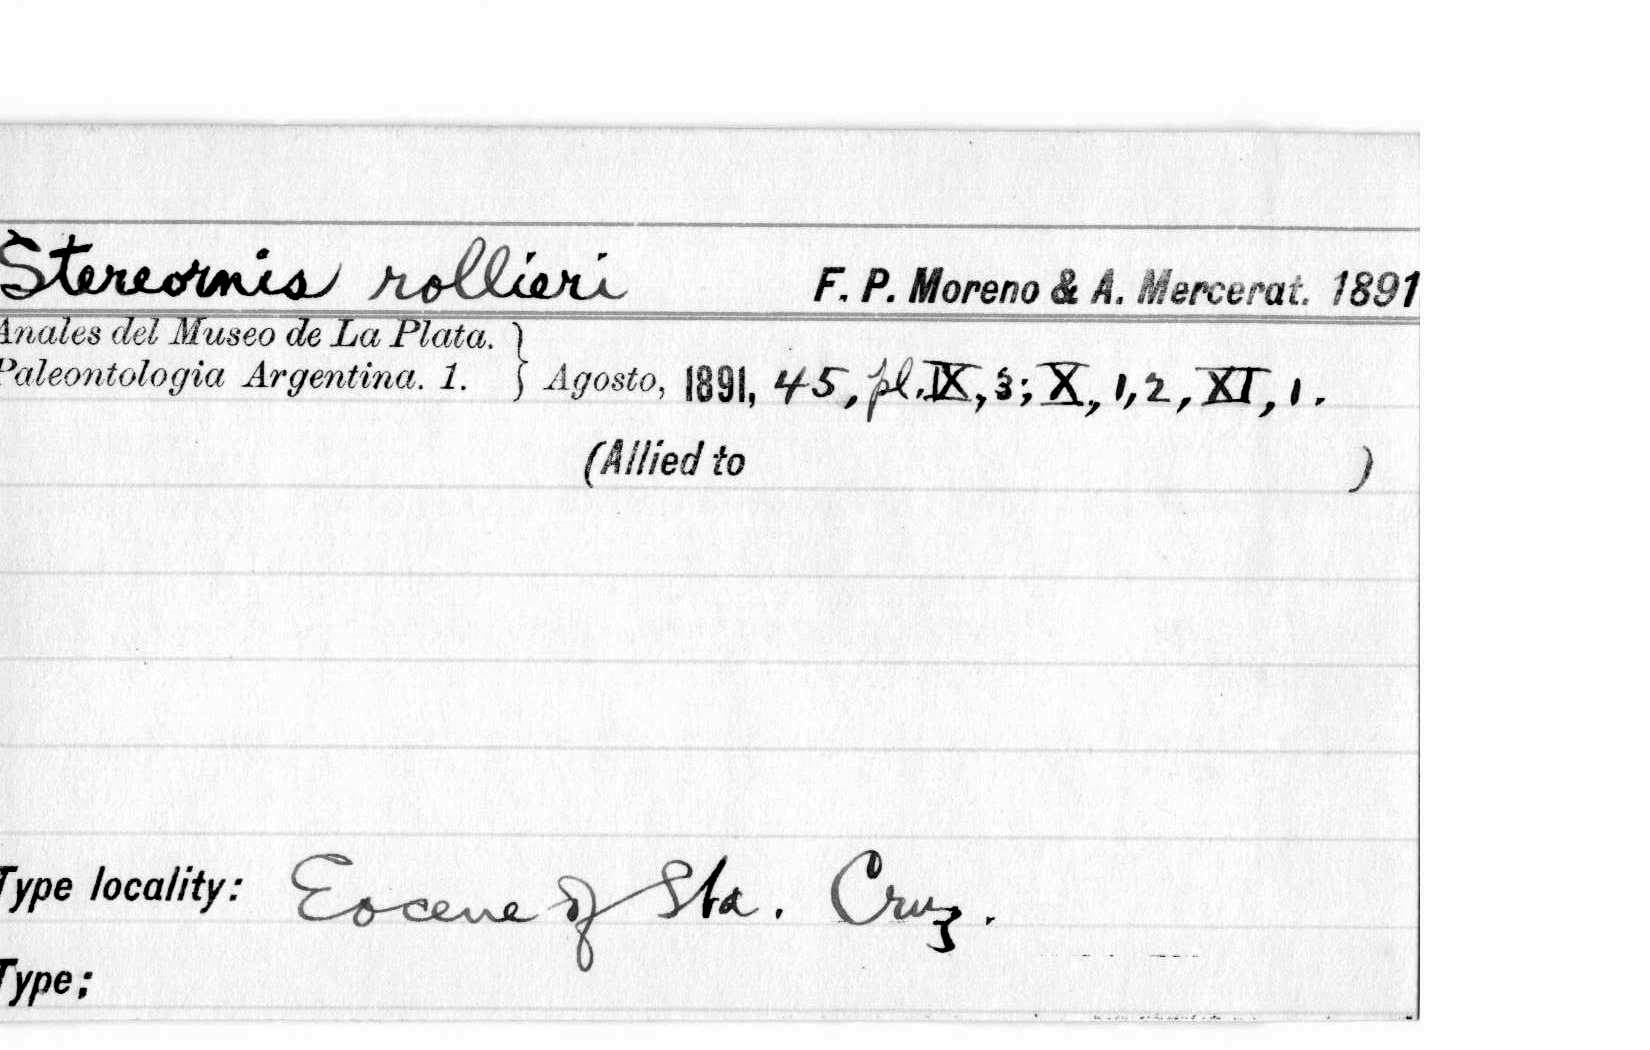 Stereornis rollieri F. P. Moreno & A. Mercerat. 1891
Anales del Museo de La Plata.
Paleontologia Argentina. 1. } Agosto, 1891, 45, pl. IX, 3; X, 1, 2, XI, 1.
(Allied to )
Type locality: Eocene of Sta. Cruz.
Type;